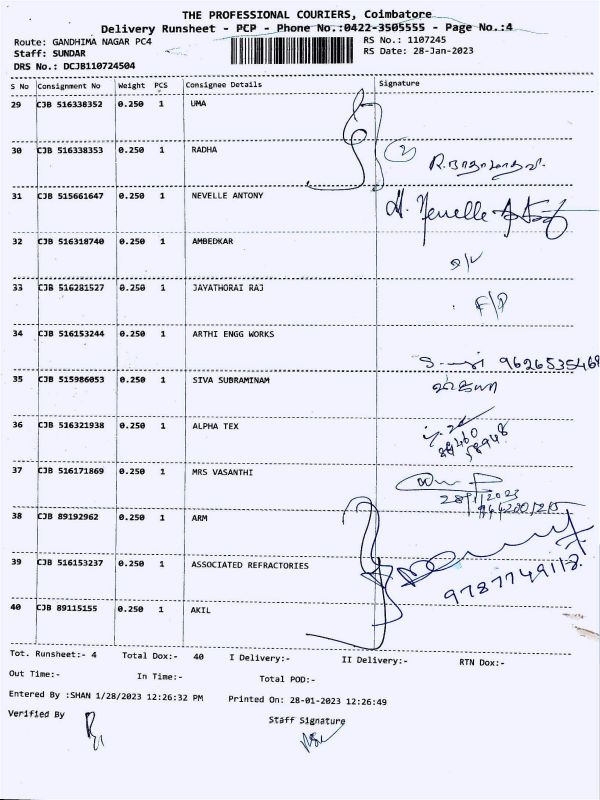 THE PROFESSIONAL COURIERS, Coimbatore
Delivery Runsheet - PCP - Phone No.:0422-3505555 - Page No.:4
Route: GANDHIMA NAGAR PC4
RS No.: 1107245
Staff: SUNDAR
RS Date: 28-Jan-2023
DRS No.: DCJB110724504
S No Consignment No Weight PCS Consignee Details Signature
29 CJB 516338352 0.250 1 UMA
30 CJB 516338353 0.250 1 RADHA
31 CJB 515661647 0.250 1 NEVELLE ANTONY
32 CJB 516318740 0.250 1 AMBEDKAR
33 CJB 516281527 0.250 1 JAYATHORAI RAJ
F/P
34 CJB 516153244 0.250 1 ARTHI ENGG WORKS
9626535468
35 CJB 515986053 0.250 1 SIVA SUBRAMINAM
36 CJB 516321938 0.250 1 ALPHA TEX
37 CJB 516171869 0.250 1 MRS VASANTHI
28/1/2023
38 CJB 89192962 0.250 1 ARM
39 CJB 516153237 0.250 1 ASSOCIATED REFRACTORIES
9787749118
40 CJB 89115155 0.250 1 AKIL
Tot. Runsheet:- 4 Total Dox:- 40 I Delivery:- II Delivery:- RTN Dox:-
Out Time:- In Time:- Total POD:-
Entered By :SHAN 1/28/2023 12:26:32 PM Printed On: 28-01-2023 12:26:49
Verified By Staff Signature